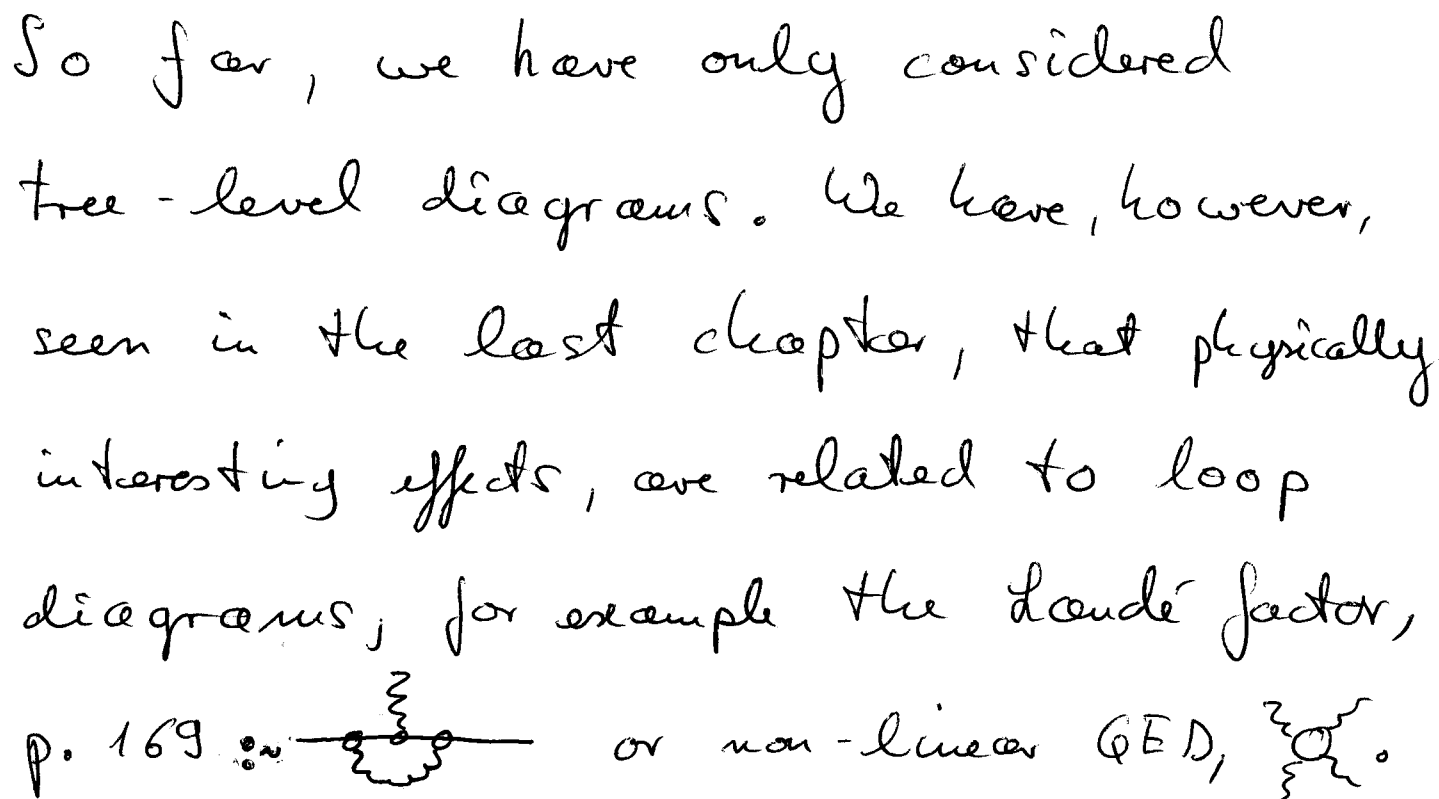 So far, we have only considered
tree-level diagrams. We have, however,
seen in the last chapter, that physically
interesting effects, are related to loop
diagrams, for example the Landé factor,
p. 169 :~ or non-linear QED, .